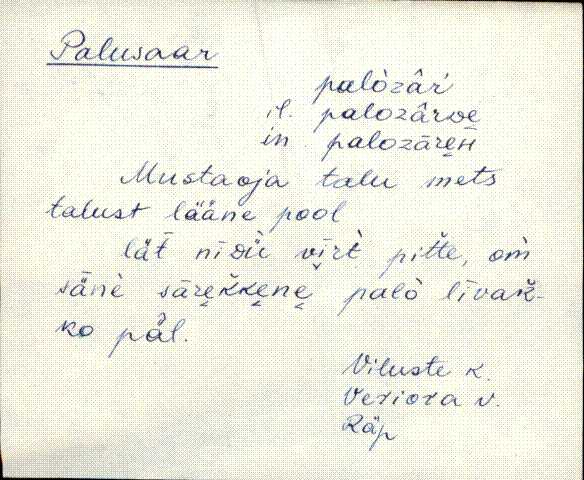 Palusaar
palòzâŕ
il. palozârvẹ
in palozārẹн
Mustaoja talu mets
talust lääne pool
lät́ nīdü vīrt̀ pit̆te, om̀
sänè sārẹkkẹnẹ palò līvak-
ko päl.
Viluste k.
Veriora v.
Räp